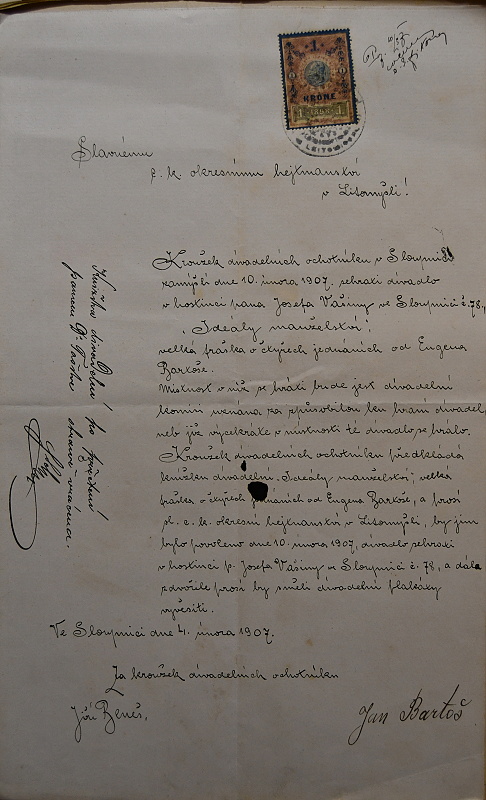 1
KRONE
1 1898 1
LEITOM
Slavnému
c. k. okresnímu hejtmanství
v Litomyšli!
Kroužek divadelních ochotníku v Sloupnici
zamýšlí dne 10. února 1907. sehrati divadlo
v hostinci pana Josefa Vašiny ve Sloupnici č. 78.,
„Ideály manželství“,
velká fraška o čtyřech jednáních od Eugena
Bartoše.
Místnost v níž se hráti bude jest divadelní
komisí uznána za způsobilou ku hraní divadel,
neb již vícekráte v místnosti té divadlo se hrálo.
Kroužek divadelních ochotníku předkládá
knížku divadelní „Ideály manželství“, velká
fraška o čtyřech jednáních od Eugena Bartoše, a prosí
sl. c. k. okresní hejtmanství v Litomyšli, by jim
bylo povoleno dne 10. února 1907, divadlo sehrati
v hostinci p. Josefa Vašiny ve Sloupnici č. 78, a dále
zdvořile prosí by směli divadelní plakáty
vyvěsiti.
Ve Sloupnici dne 4. února 1907.
Za kroužek divadelních ochotníku
Jiří Beneš,
Jan Bartoš
Knížka divadelní po
panem
vrácena.